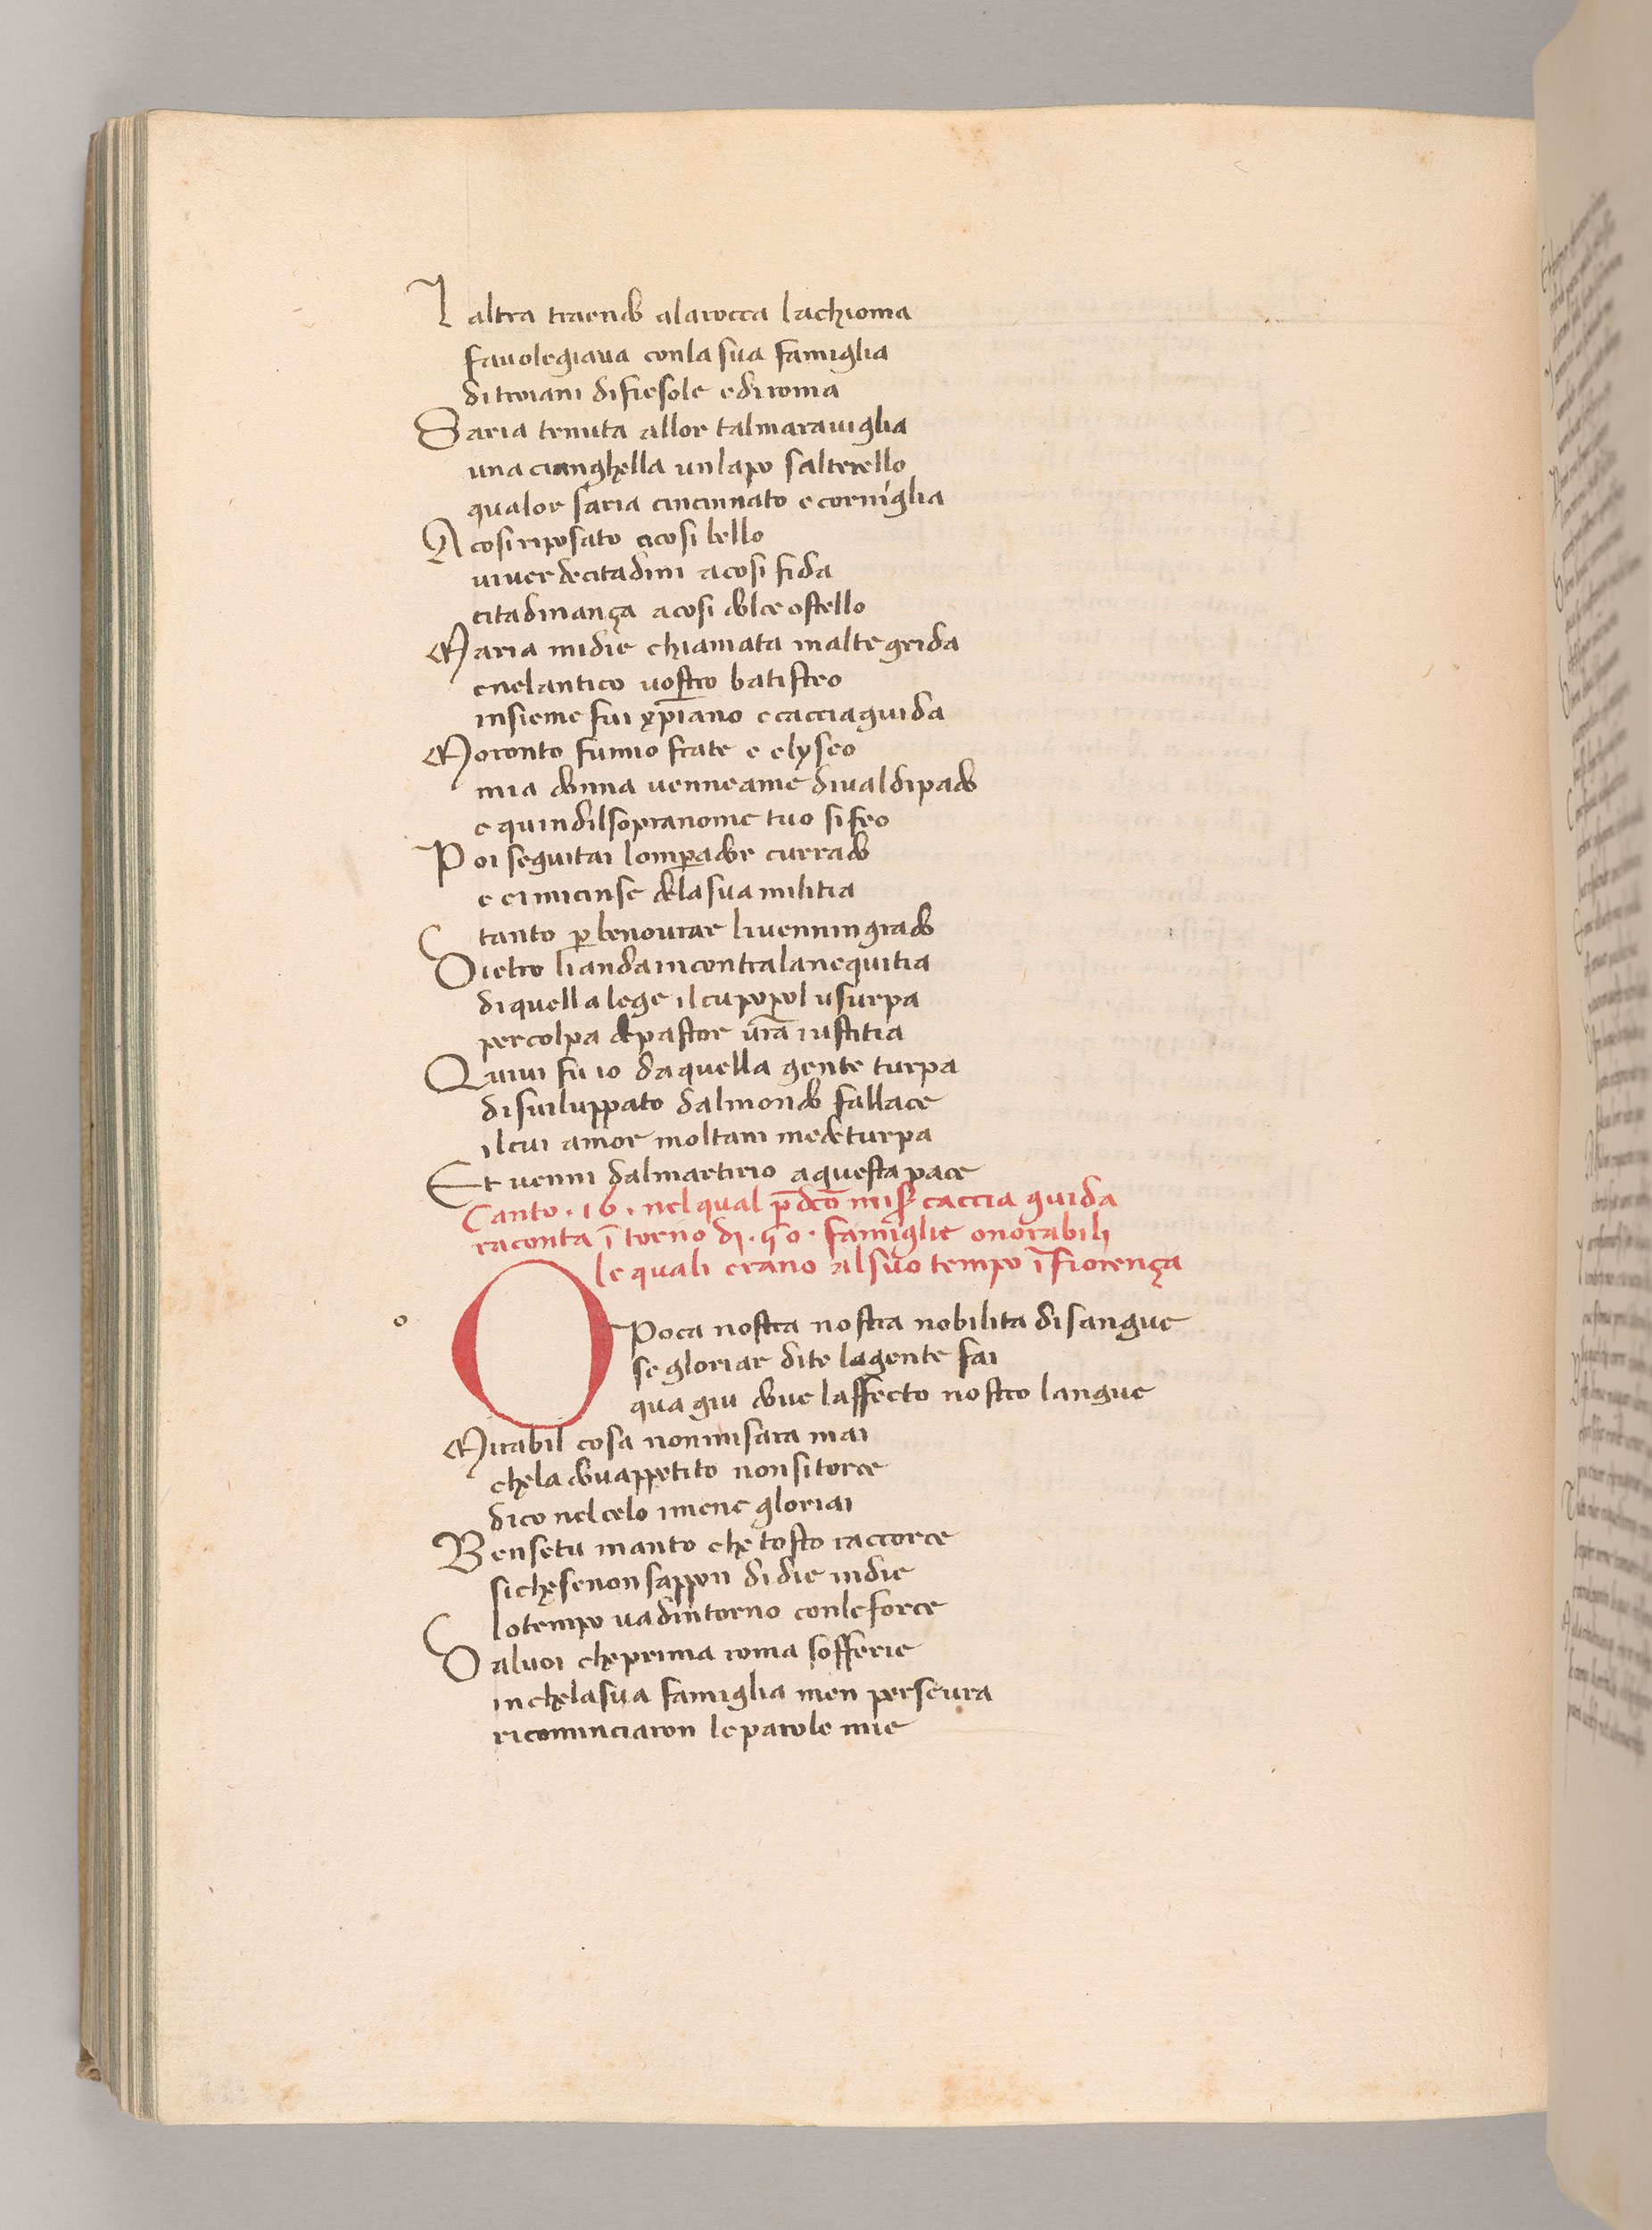 L altra traendo alarocca lachioma
favolegiava conla sua famiglia
di troiani difiesole ediroma
Saria tenuta allor talmaraviglia
una cianghella unlapo salterello
qualor saria cincinnato e corniglia
A cosi riposato acosi bello
viver decitadini acosi fida
citadinança acosi dolce ostello
Maria midie chiamata inalte grida
enelantico vostro batisteo
insieme fui xpiano e cacciaguida
Moronto fumio frate e elyseo
mia donna venneame dival dipado
e quindilsopranome tuo si feo
Poi seguitai lomperador currado
e ei mi cinse dela sua militia
tanto per benovrar livenningrado
Dietro liandaincontralanequitia
diquella lege il cu popol usurpa
percolpa depastor vra iustitia
Quivi fu io daquella gente turpa
disviluppato dalmondo fallace
ilcui amor moltam medeturpa
Et venni dalmartirio aquesta pace
Canto .16. nel qual p dco miss caccia guida
raconta ī torno di .40. famiglie onorabili
le quali erano alsuo tempo ī Fiorença
o
O Poca nostra nostra nobilita disangue
segloriar dite lagente fai
qua giu dove laffecto nostro langue
Mirabil cosa nonmisara mai
chela dovappetito nonsitorce
dico nelcelo imene gloriai
Bensetu manto che tosto raccorce
sichesenon sappon didie indie
lotempo vadintorno conleforce
Dalvoi cheprima roma sofferie
inchelasua famiglia men persevra
ricominciaron leparole mie